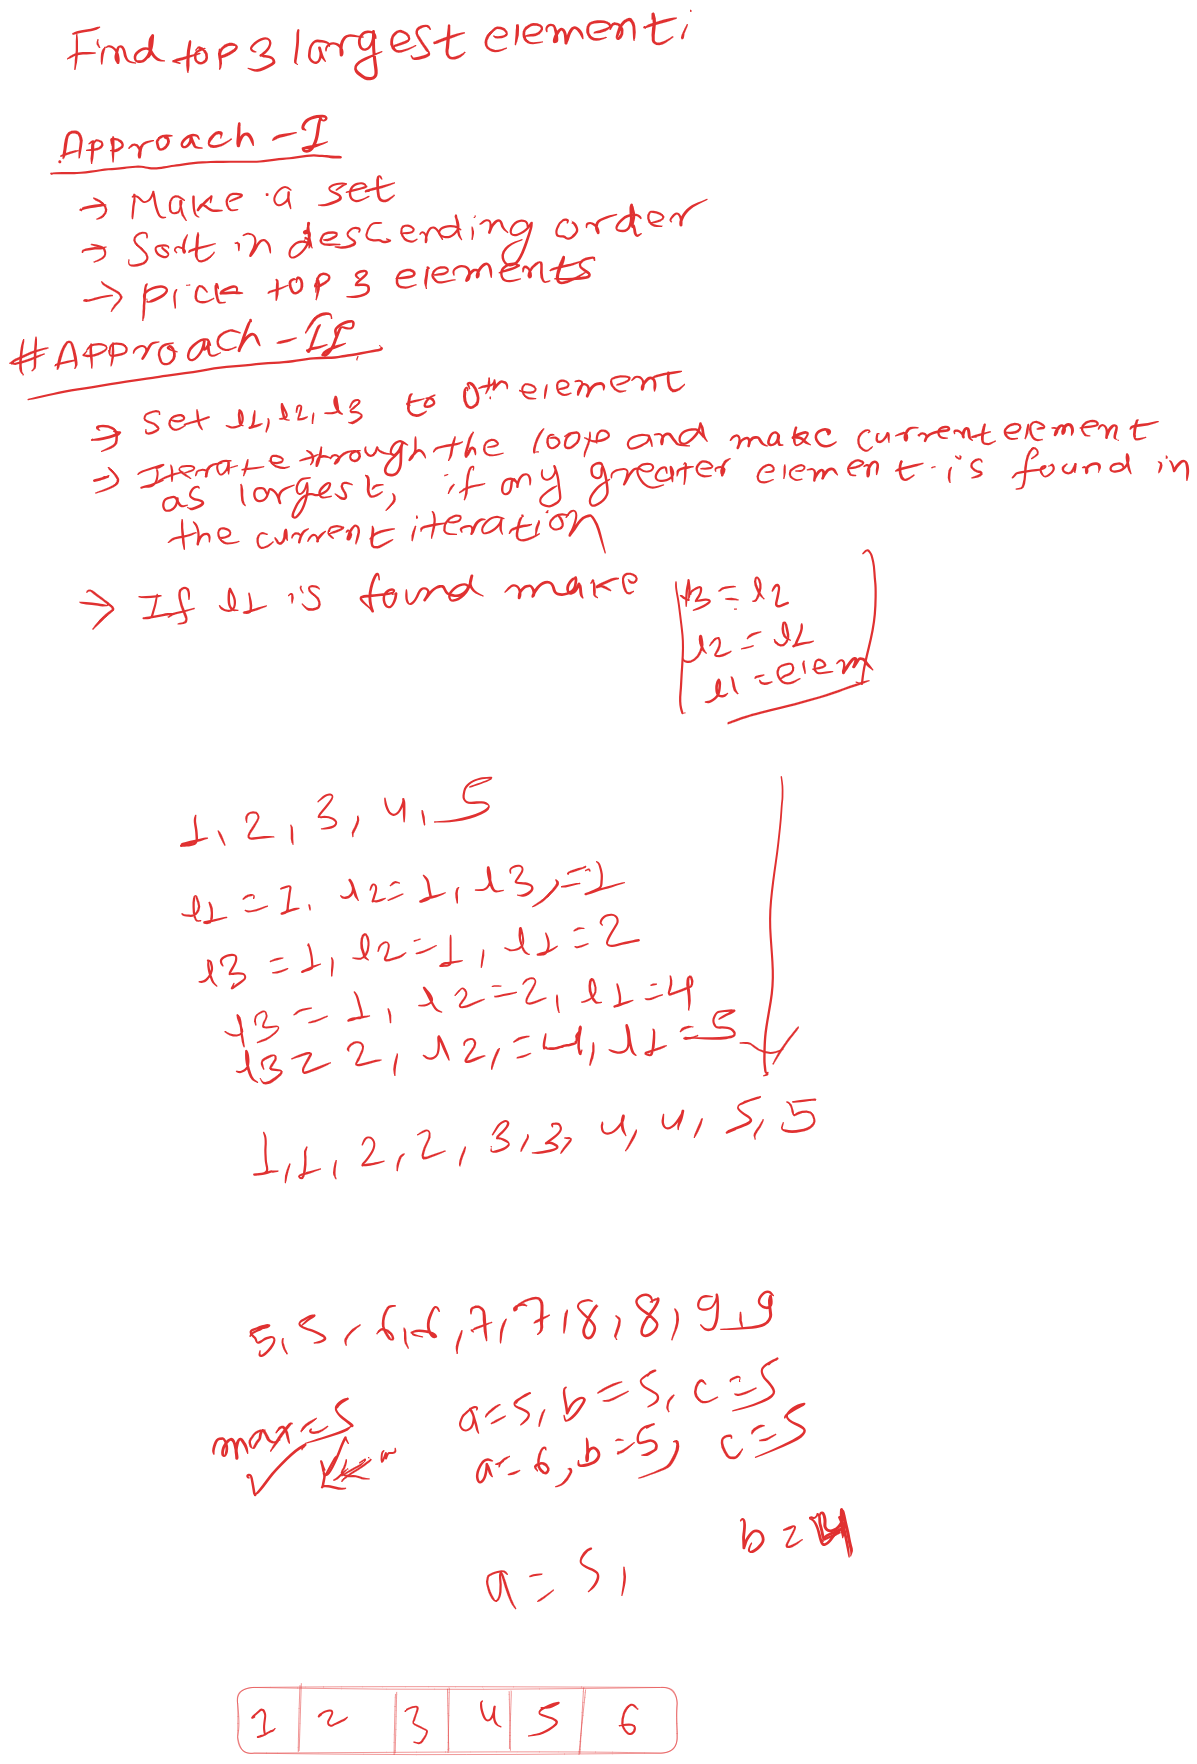 Find top 3 largest element;
Approach - I
→ Make a set
→ Sort in descending order
→ pick top 3 elements
# Approach - II
→ set l1, l2, l3 to 0th element
→ Iterate through the loop and make current element
as largest, if any greater element is found in
the current iteration
→ If l1 is found make
l3 = l2
l2 = l1
l1 = elem
1, 2, 3, 4, 5
l1 = 1, l2 = 1, l3, = 1
l3 = 1, l2 = 1, l1 = 2
l3 = 1, l2 = 2, l1 = 4
l3 = 2, l2, = 4, l1 = 5
1, 1, 2, 2, 3, 3, 4, 4, 5, 5
5, 5, 6, 6, 7, 7, 8, 8, 9, 9
max = 5
a = 5, b = 5, c = 5
a = 6, b = 5, c = 5
b = 4
a = 5,
1 2 3 4 5 6